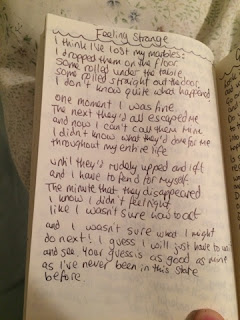 Feeling Strange
I think I've lost my marbles:
I dropped them on the floor
Some rolled under the table
some rolled straight out the door.
I don't know quite what happened
one moment I was fine
The next they'd all escaped me
and now I can't call them mine
I didn't know what they'd done for me
throughout my entire life
until they'd rudely upped and left
and I have to fend for myself.
The minute that they disappeared
I know I didn't feel right
like I wasn't sure how to act
and I wasn't sure what I might
do next! I guess I will just have to wait
and see. Your guess is as good as mine
as I've never been in this state
before.